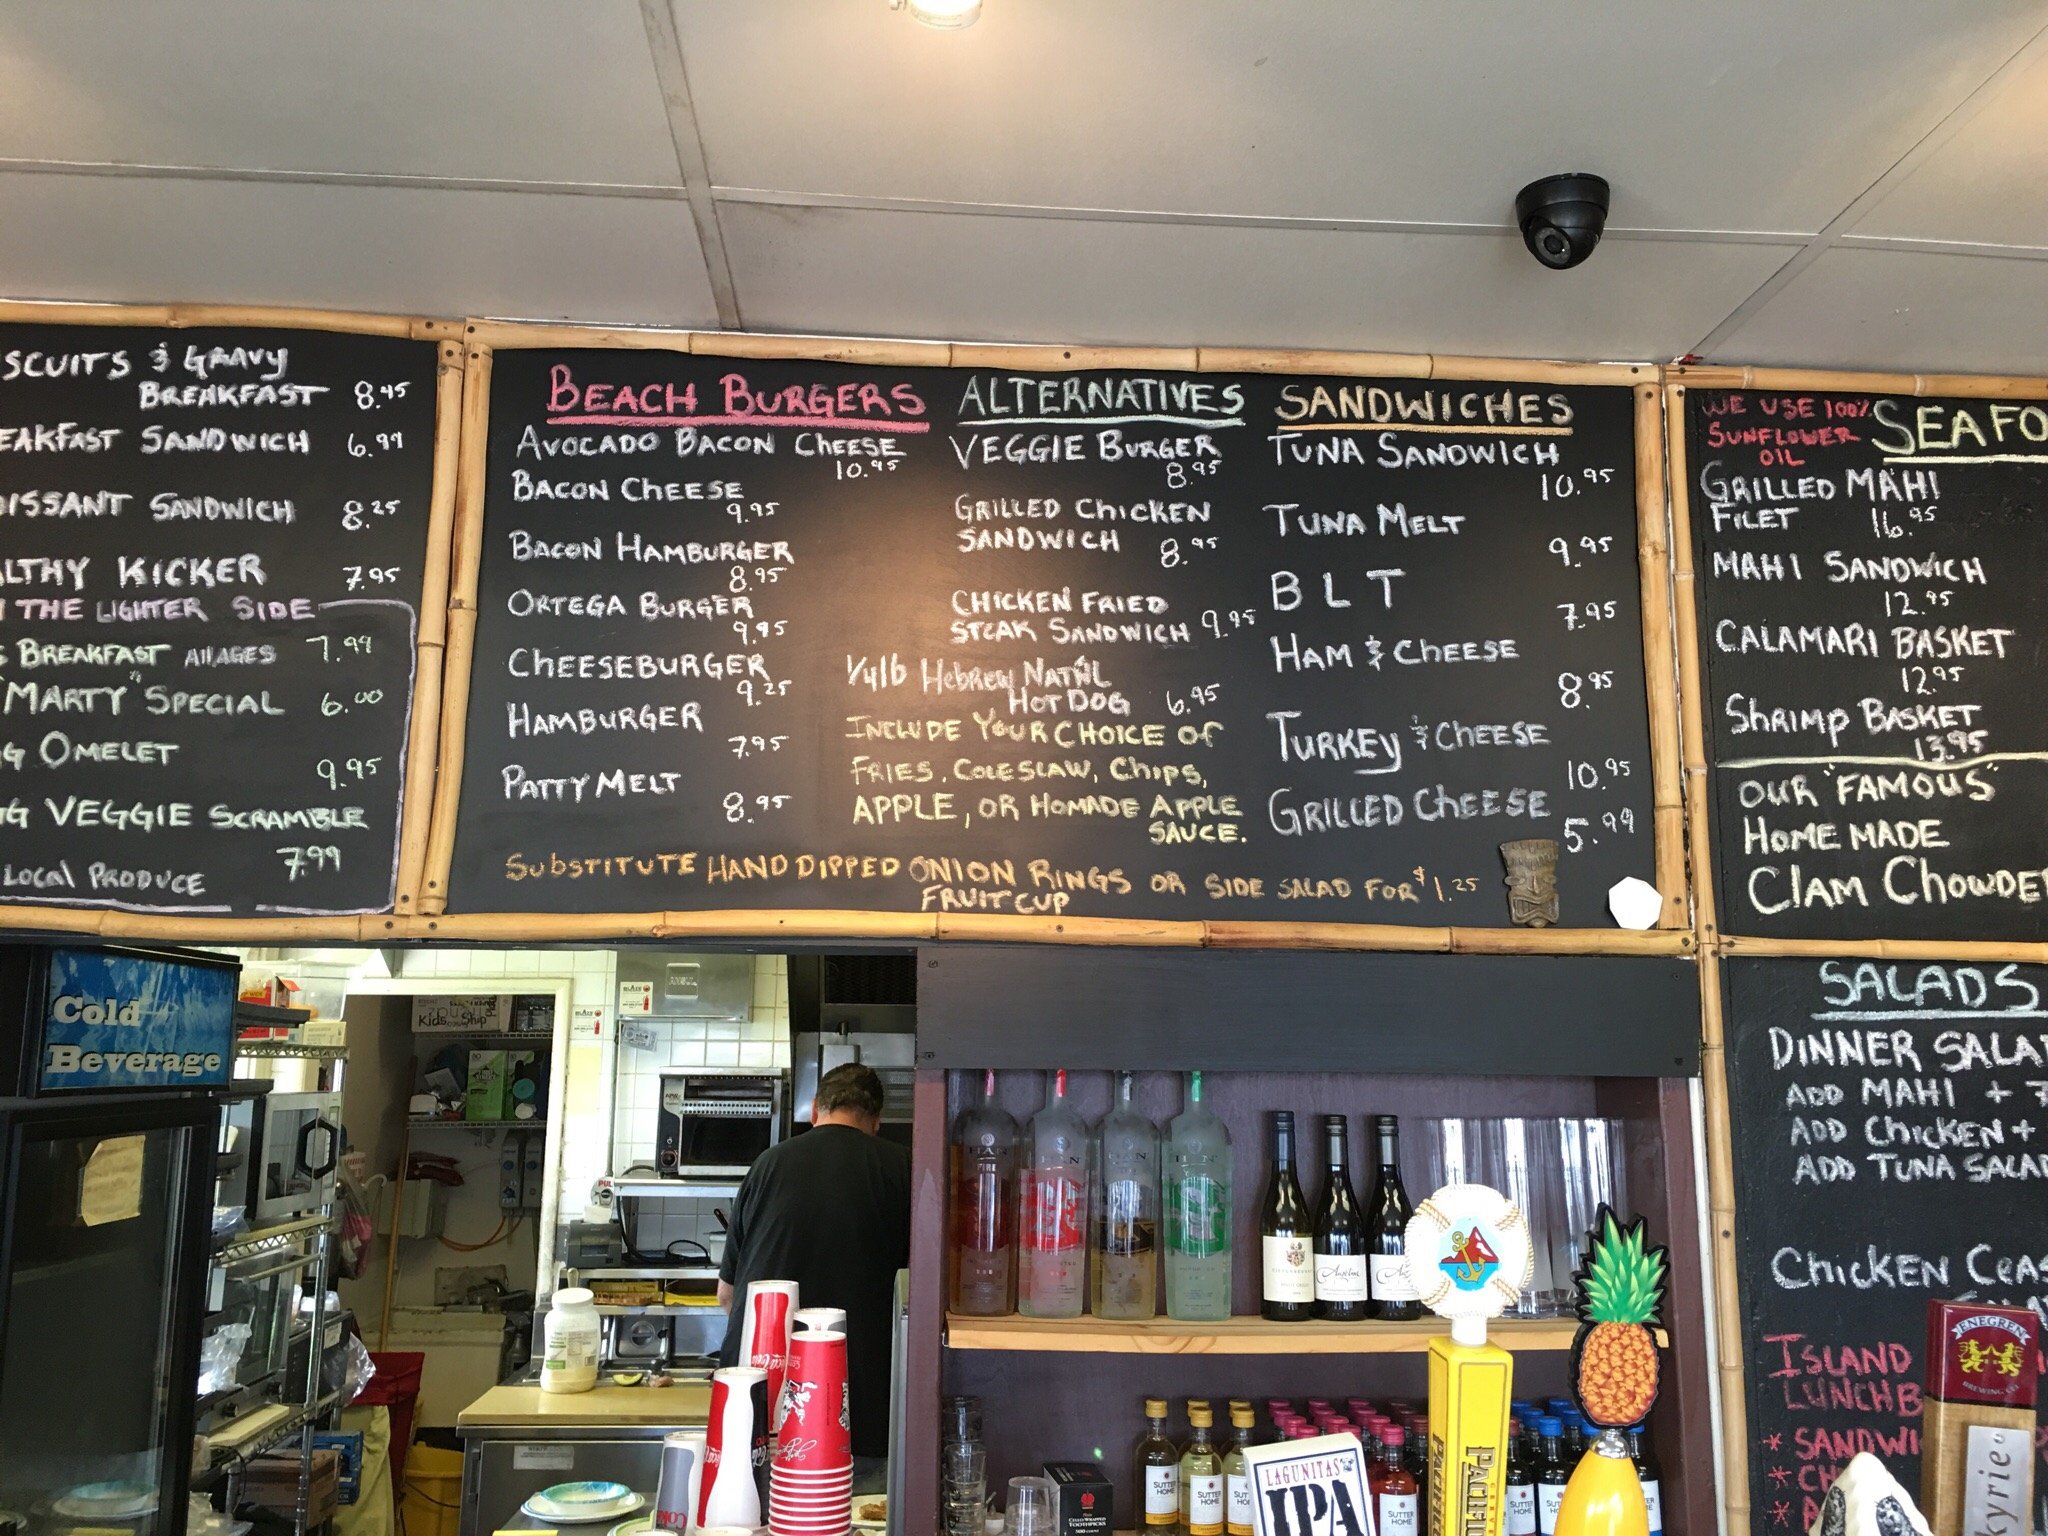 & GRAVY
BREAKFAST 8.45
SANDWICH 6.99
SANDWICH 8.25
KICKER 7.95
THE LIGHTER SIDE
BREAKFAST All AGES 7.99
"MARTY" SPECIAL 6.00
OMELET
9.95
VEGGIE SCRAMBLE
7.99
LOCAL PRODUCE
BEACH BURGERS
AVOCADO BACON CHEESE
10.95
BACON CHEESE
9.95
BACON HAMBURGER
8.95
ORTEGA BURGER
9.95
CHEESEBURGER
9.25
HAMBURGER
7.95
PATTY MELT
8.95
ALTERNATIVES
VEGGIE BURGER
8.95
GRILLED CHICKEN
SANDWICH 8.95
CHICKEN FRIED
STEAK SANDWICH 9.95
1/4 lb Hebrew NAT'L
HOT DOG 6.95
INCLUDE YOUR CHOICE OF
FRIES, COLESLAW, CHIPS,
APPLE, OR HOMADE APPLE
SAUCE.
SANDWICHES
TUNA SANDWICH
10.95
TUNA MELT
9.95
B L T
7.95
HAM & CHEESE
8.95
TURKEY & CHEESE
10.95
GRILLED CHEESE
5.99
SUBSTITUTE HAND DIPPED ONION RINGS OR SIDE SALAD FOR $1.25
FRUIT CUP
WE USE 100%
SUNFLOWER
OIL
GRILLED MAHI
FILET 16.95
MAHI SANDWICH
12.95
CALAMARI BASKET
12.95
Shrimp BASKET
13.95
OUR "FAMOUS"
HOME MADE
Clam
SALADS
DINNER
ADD MAHI +
ADD CHICKEN +
ADD TUNA
CHICKEN
ISLAND
Cold
Beverage
ANSUL
Kids
HAN
HAN
HAN
LAGUNITAS
IPA
SUTTER
HOME
SUTTER
HOME
SUTTER
HOME
CELLO WRAPPED
TOOTHPICKS
PACIFIC
ENEGREN
BREWING CO.